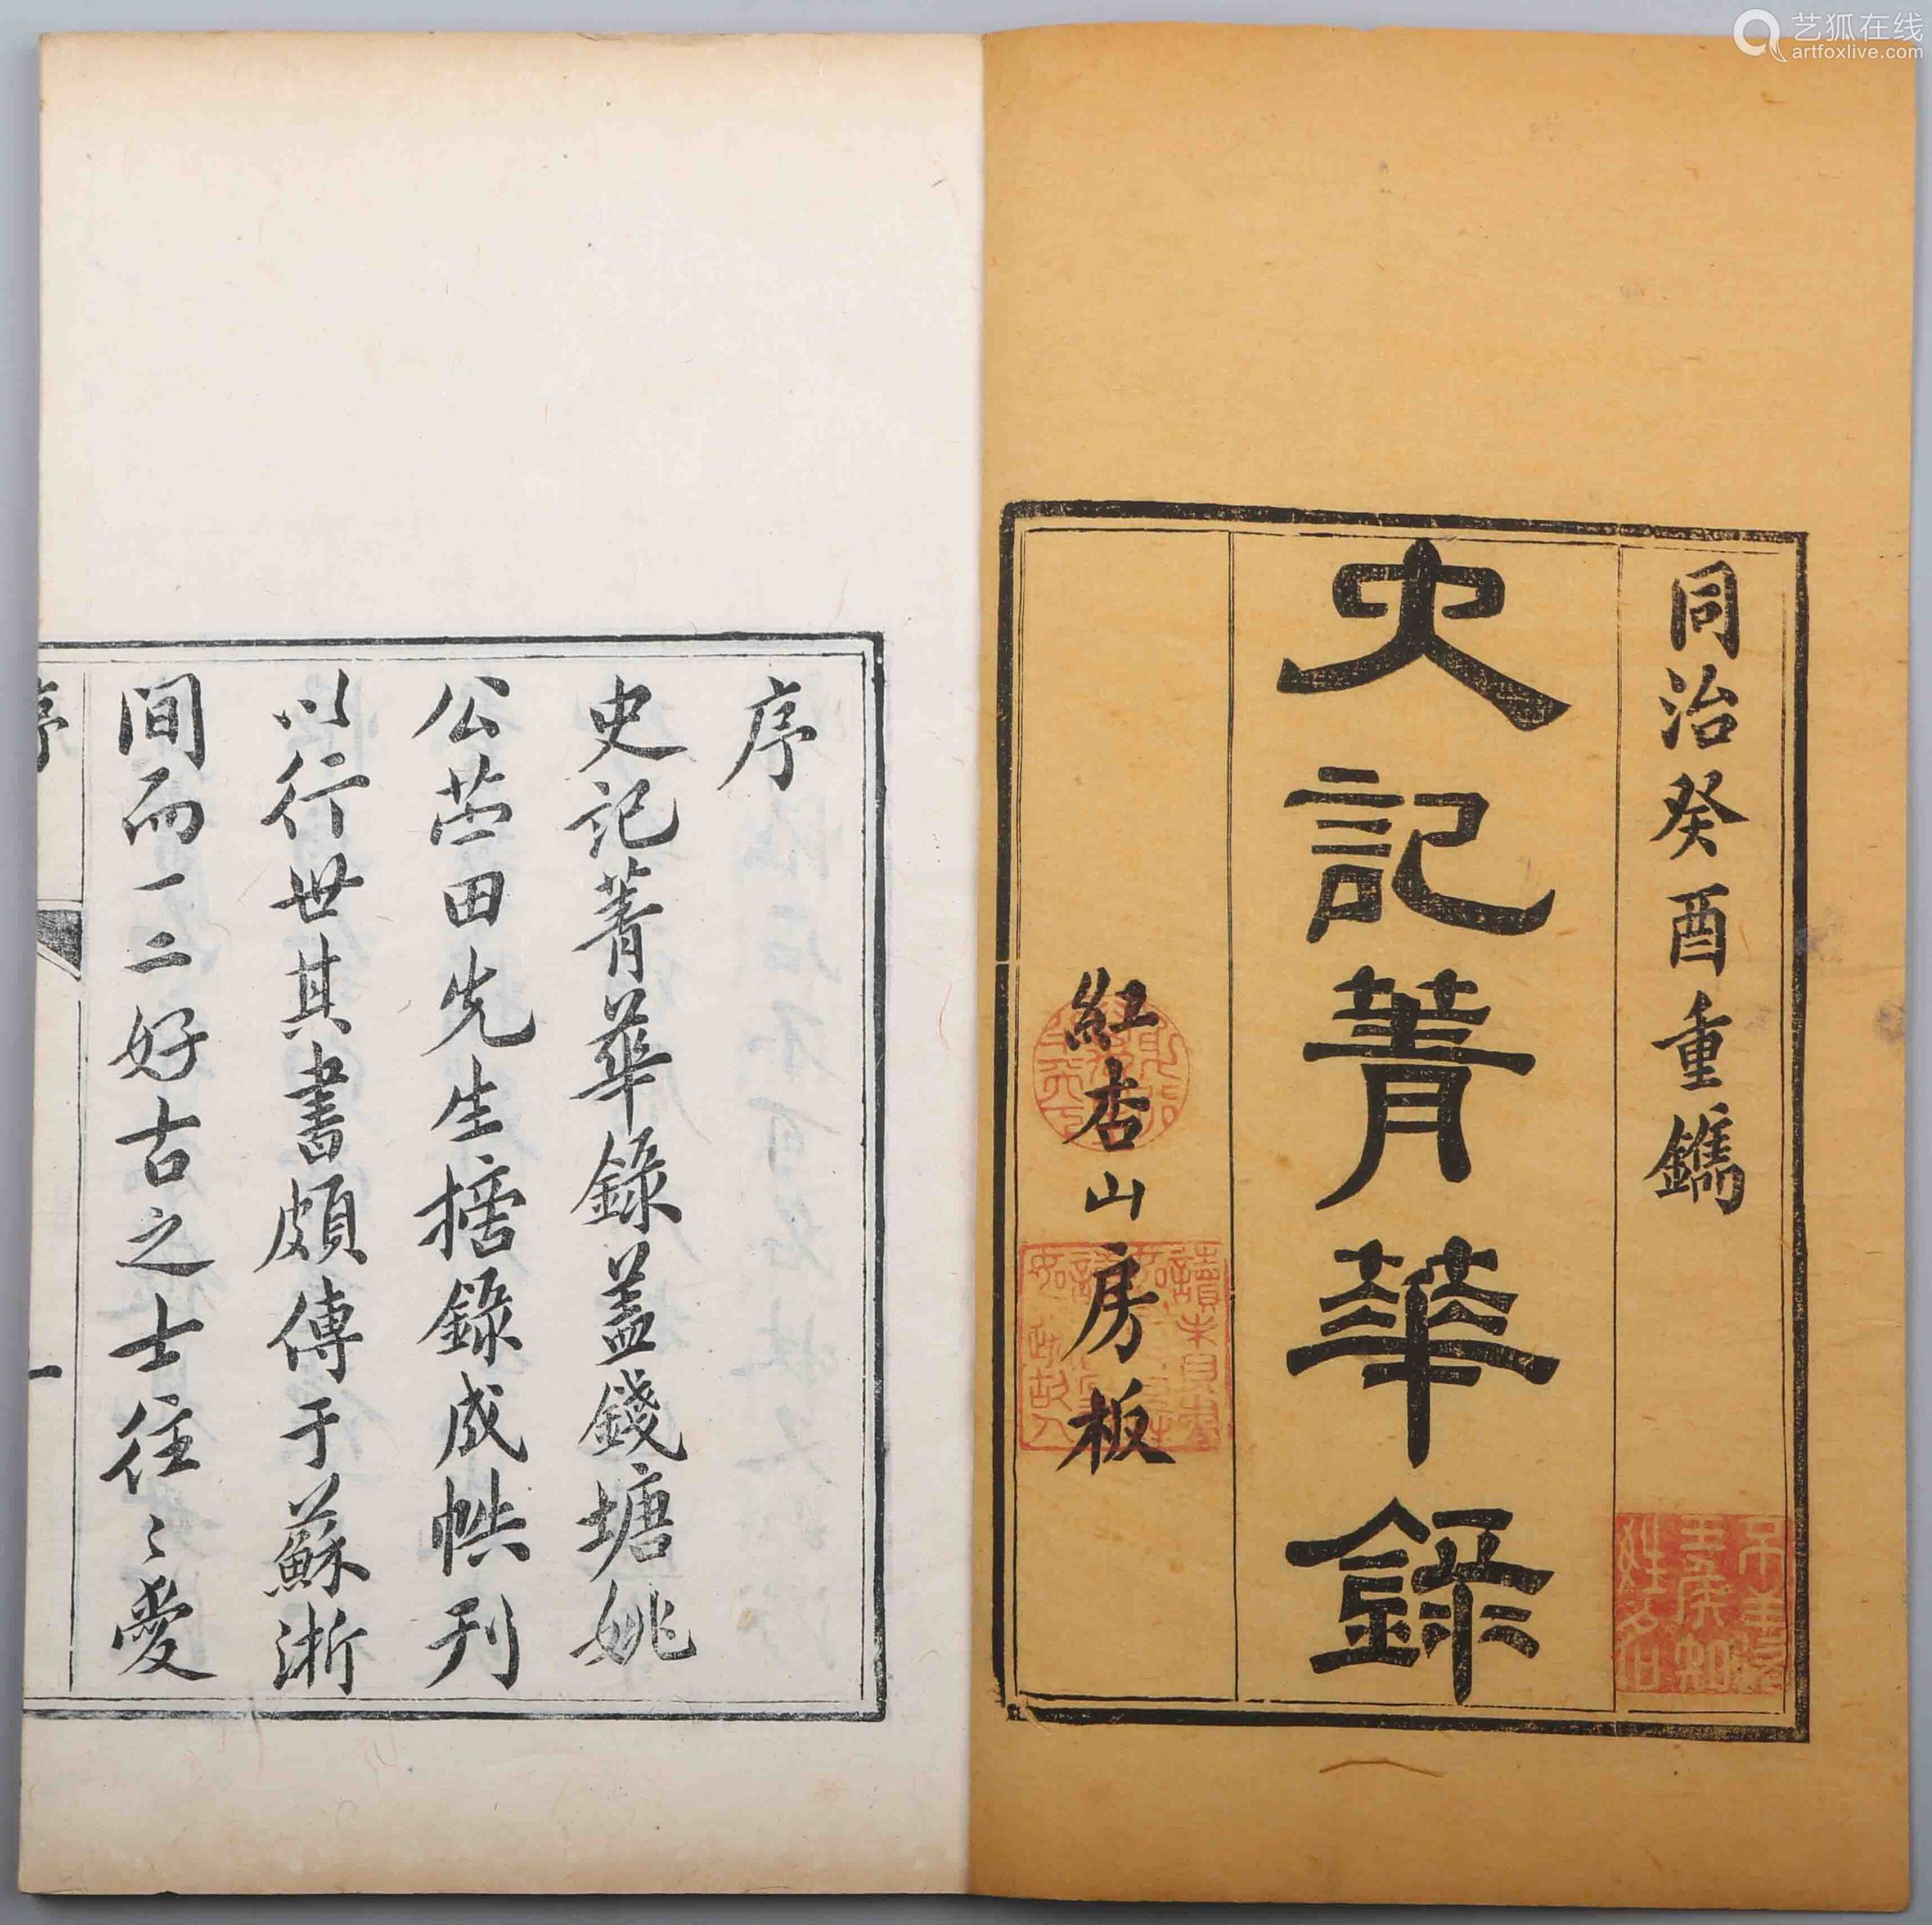 艺狐在线
artfoxlive.com
同治癸酉重鐫
史記菁華錄
紅杏山房板
序
史記菁華錄蓋錢塘姚
公苎田先生搭錄成帙刊
以行世其書頗傳于蘇浙
間而一二好古之士往〻愛
序
一